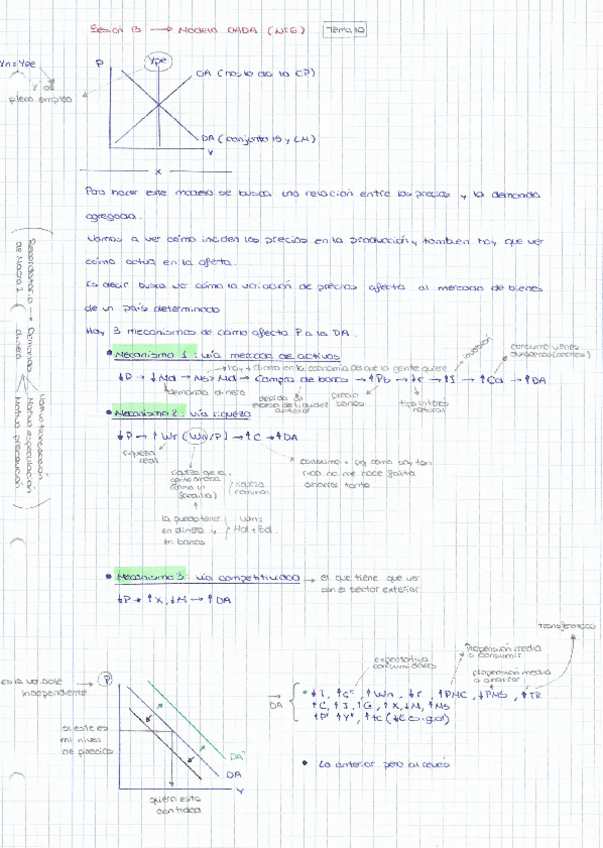 Sesión 13 → Modelo OADA (NIG) Tema 10
Yn = Ype
pleno empleo
P
Ype
OA (hasta da la CP)
DA (conjunta IS y LM)
Y
X
Para hacer este modelo se busca una relación entre los precios y la demanda
agregada.
Vamos a ver cómo inciden los precios en la producción y también hay que ver
cómo actua en la oferta.
Es decir busca ver cómo la variación de precios afecta al mercado de bienes
de un país determinado
Hay 3 mecanismos de como afecta P a la DA.
Recordatorio → Demanda
de Macro 1 dinero
Motivo transacción
Motivo especulación
Motivo precaución
• Mecanismo 1: vía mercado de activos
hay + dinero en la economía de que la gente quiere
inversión
consumo bienes
duraderos (coches)
↓P → ↓Md → Ms > Md → Compra de bonos → ↑Pb → ↓r → ↑I → ↑Cd → ↑DA
demanda dinero
debido a
exceso de liquidez
anterior
precio
bonos
tipo interés
• Mecanismo 2: vía riqueza
↓P → ↑Wr (Wn/P) → ↑C → ↑DA
riqueza
real
riqueza que la
gente
riqueza
nominal
consumo + pq como soy tan
rico no me hace falta
ahorrar tanto
la puedo tener
en dinero y
en bonos
Wn =
Md + Bd
• Mecanismo 3: vía competitividad → el que tiene que ver
con el sector exterior
↓P → ↑X, ↓M → ↑DA
es la variable
independiente
P
si este es
mi nivel
de precios
DA'
DA
Y
quiero esta
cantidad
expectativa
consumidores
Propensión media
a consumir
propensión media
a ahorrar
transferencias
DA
↓T, ↑Ce, ↑Wn, ↓r, ↑PMC, ↓PMS, ↑TR
↑C, ↑I, ↑G, ↑X, ↓M, ↑MS
• Lo anterior pero al revés